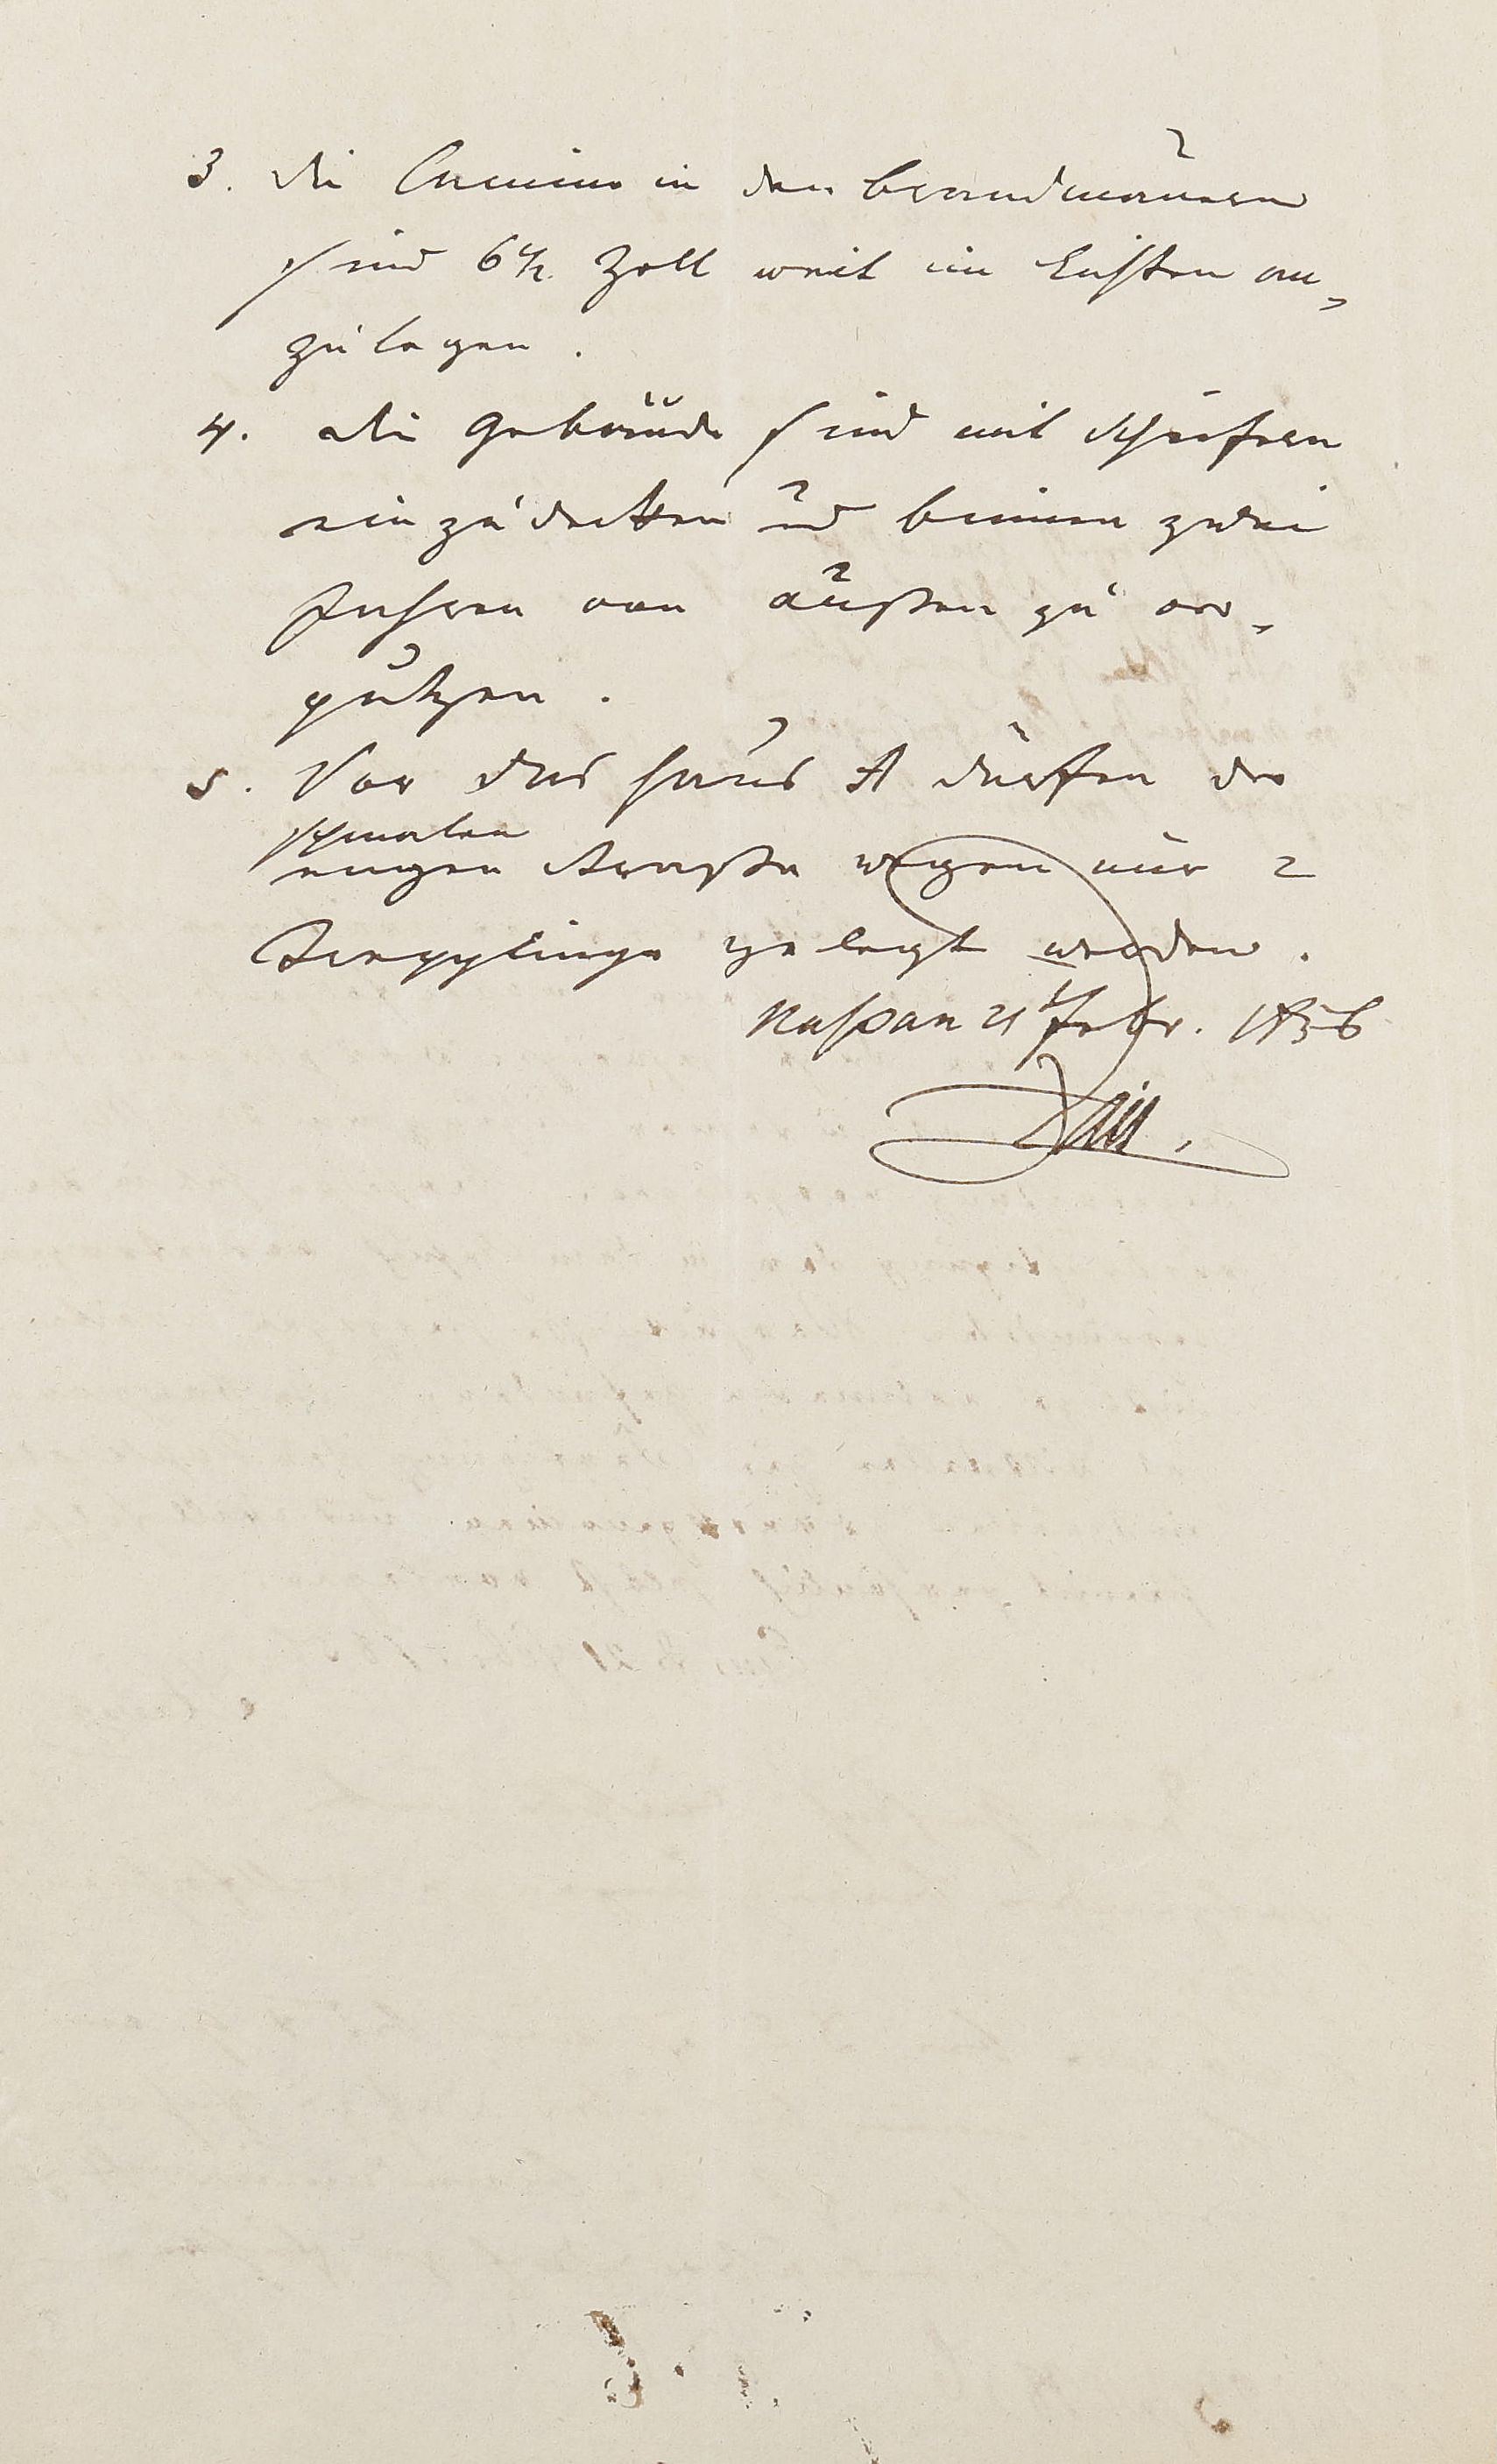 3. die Camine in den Brandmauern
sind 6 1/2 Zoll weit im Lichten an„
zulegen.
4. die Gebäude sind mit Schiefern
einzudecken und binnen zwei
Jahren von außen zu ver„
putzen.
5. Vor das Haus A dürfen der
schmalen
engen Straße wegen nur 2
Trepplinge gelegt werden.
Nassau 21t Febr. 1856